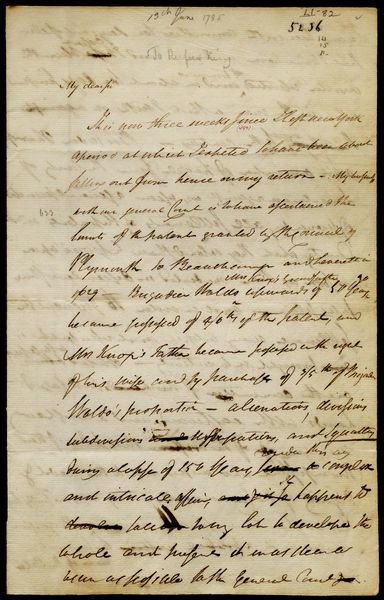 13th June 1785
LL-82
5236
14
15
To Rufus King
My dear sir
It is now three weeks since I left New York
a period at which I expected to have been about
setting out from hence on my return — My business
with our general Court is to have ascertained the
limits of the patent granted by the council of
633
Plymouth to Beauchamp and Leverett in
Mrs Knox's Grandfather
1629 Brigadier Waldo upwards of 50 Years
became possessed of of the patent, and
Mrs Knox's Father became possessed in the right
of his wife and by purchase of 2/5th of Brigadier
Waldo's proportion — alienations, divisions
subdivisions and Squatters
during a lapse of 150 Years, render this a complex
and intricate affair, happens to
my lot to develope the
whole and present it in as clear a
view as possible to the general Court